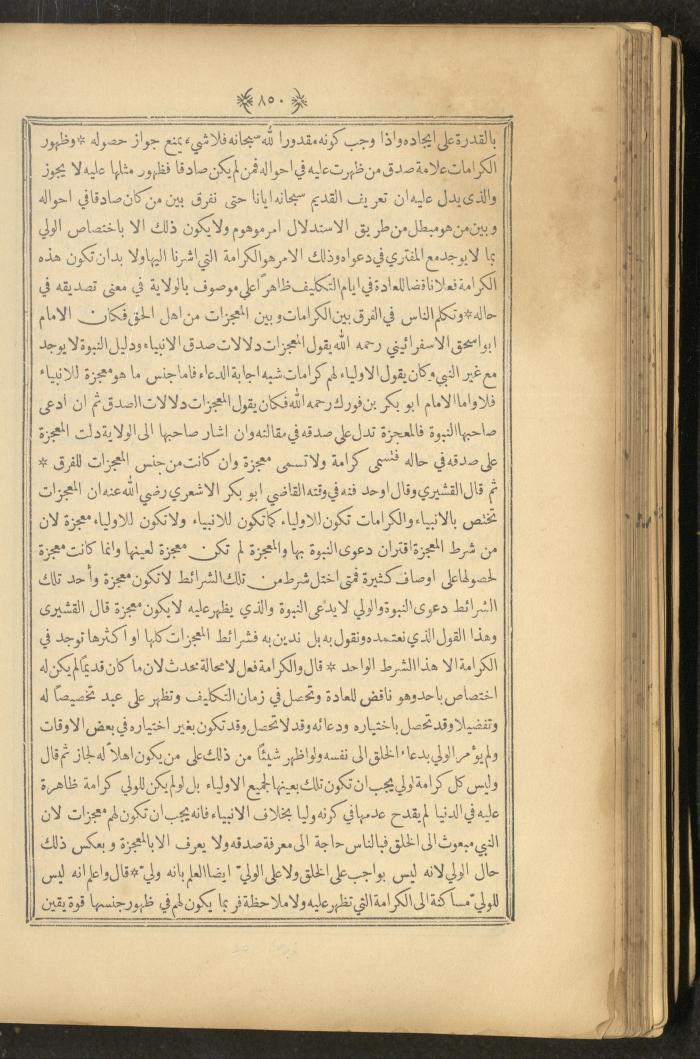 ﴿ ٨٥٠ ﴾
بالقدرة على ايجاده واذا وجب كونه مقدورا لله سبحانه فلا شيء يمنع جواز حصوله * وظهور
الكرامات علامة صدق من ظهرت عليه في احواله فمن لم يكن صادقا فظهور مثلها عليه لا يجوز
والذي يدل عليه ان تعريف القديم سبحانه ايانا حتى نفرق بين من كان صادقا في احواله
وبين من هو مبطل من طريق الاستدلال امر موهوم ولا يكون ذلك الا باختصاص الولي
بما لا يوجد مع المفتري في دعواه وذلك الامر هو الكرامة التي اشرنا اليها ولا بد ان تكون هذه
الكرامة فعلا ناقضا للعادة في ايام التكليف ظاهرًا على موصوف بالولاية في معنى تصديقه في
حاله * وتكلم الناس في الفرق بين الكرامات وبين المعجزات من اهل الحق فكان الامام
ابو اسحق الاسفرائيني رحمه الله يقول المعجزات دلالات صدق الانبياء ودليل النبوة لا يوجد
مع غير النبي وكان يقول الاولياء لهم كرامات شبه اجابة الدعاء فاما جنس ما هو معجزة للانبياء
فلا واما الامام ابو بكر بن فورك رحمه الله فكان يقول المعجزات دلالات الصدق ثم ان أدعى
صاحبها النبوة فالمعجزة تدل على صدقه في مقالته وان اشار صاحبها الى الولاية دلت المعجزة
على صدقه في حاله فتسمى كرامة ولا تسمى معجزة وان كانت من جنس المعجزات للفرق *
ثم قال القشيري وقال اوحد فنه في وقته القاضي ابو بكر الاشعري رضي الله عنه ان المعجزات
تختص بالانبياء والكرامات تكون للاولياء كما تكون للانبياء ولا تكون للاولياء معجزة لان
من شرط المعجزة اقتران دعوى النبوة بها والمعجزة لم تكن معجزة لعينها وانما كانت معجزة
لحصولها على اوصاف كثيرة فمتى اختل شرط من تلك الشرائط لا تكون معجزة وأحد تلك
الشرائط دعوى النبوة والولي لا يدعى النبوة والذي يظهر عليه لا يكون معجزة قال القشيرى
وهذا القول الذي نعتمده ونقول به بل ندين به فشرائط المعجزات كلها او أكثرها توجد في
الكرامة الا هذا الشرط الواحد * قال والكرامة فعل لا محالة محدث لان ما كان قديمًا لم يكن له
اختصاص باحد وهو ناقض للعادة وتحصل في زمان التكليف وتظهر على عبد تخصيصًا له
وتفضيلا وقد تحصل باختياره ودعائه وقد لا تحصل وقد تكون بغير اختياره في بعض الاوقات
ولم يؤمر الولي بدعاء الخلق الى نفسه ولو اظهر شيئًا من ذلك على من يكون اهلاً له لجاز ثم قال
وليس كل كرامة لولي يجب ان تكون تلك بعينها لجميع الاولياء بل لو لم يكن للولي كرامة ظاهرة
عليه في الدنيا لم يقدح عدمها في كونه وليا بخلاف الانبياء فانه يجب ان تكون لهم معجزات لان
النبي مبعوث الى الخلق فبالناس حاجة الى معرفة صدقه ولا يعرف الا بالمعجزة وبعكس ذلك
حال الولي لانه ليس بواجب على الخلق ولا على الوليّ ايضا العلم بانه وليّ * قال واعلم انه ليس
للوليّ مساكنة الى الكرامة التي تظهر عليه ولا ملاحظة فربما يكون لهم في ظهور جنسها قوة يقين